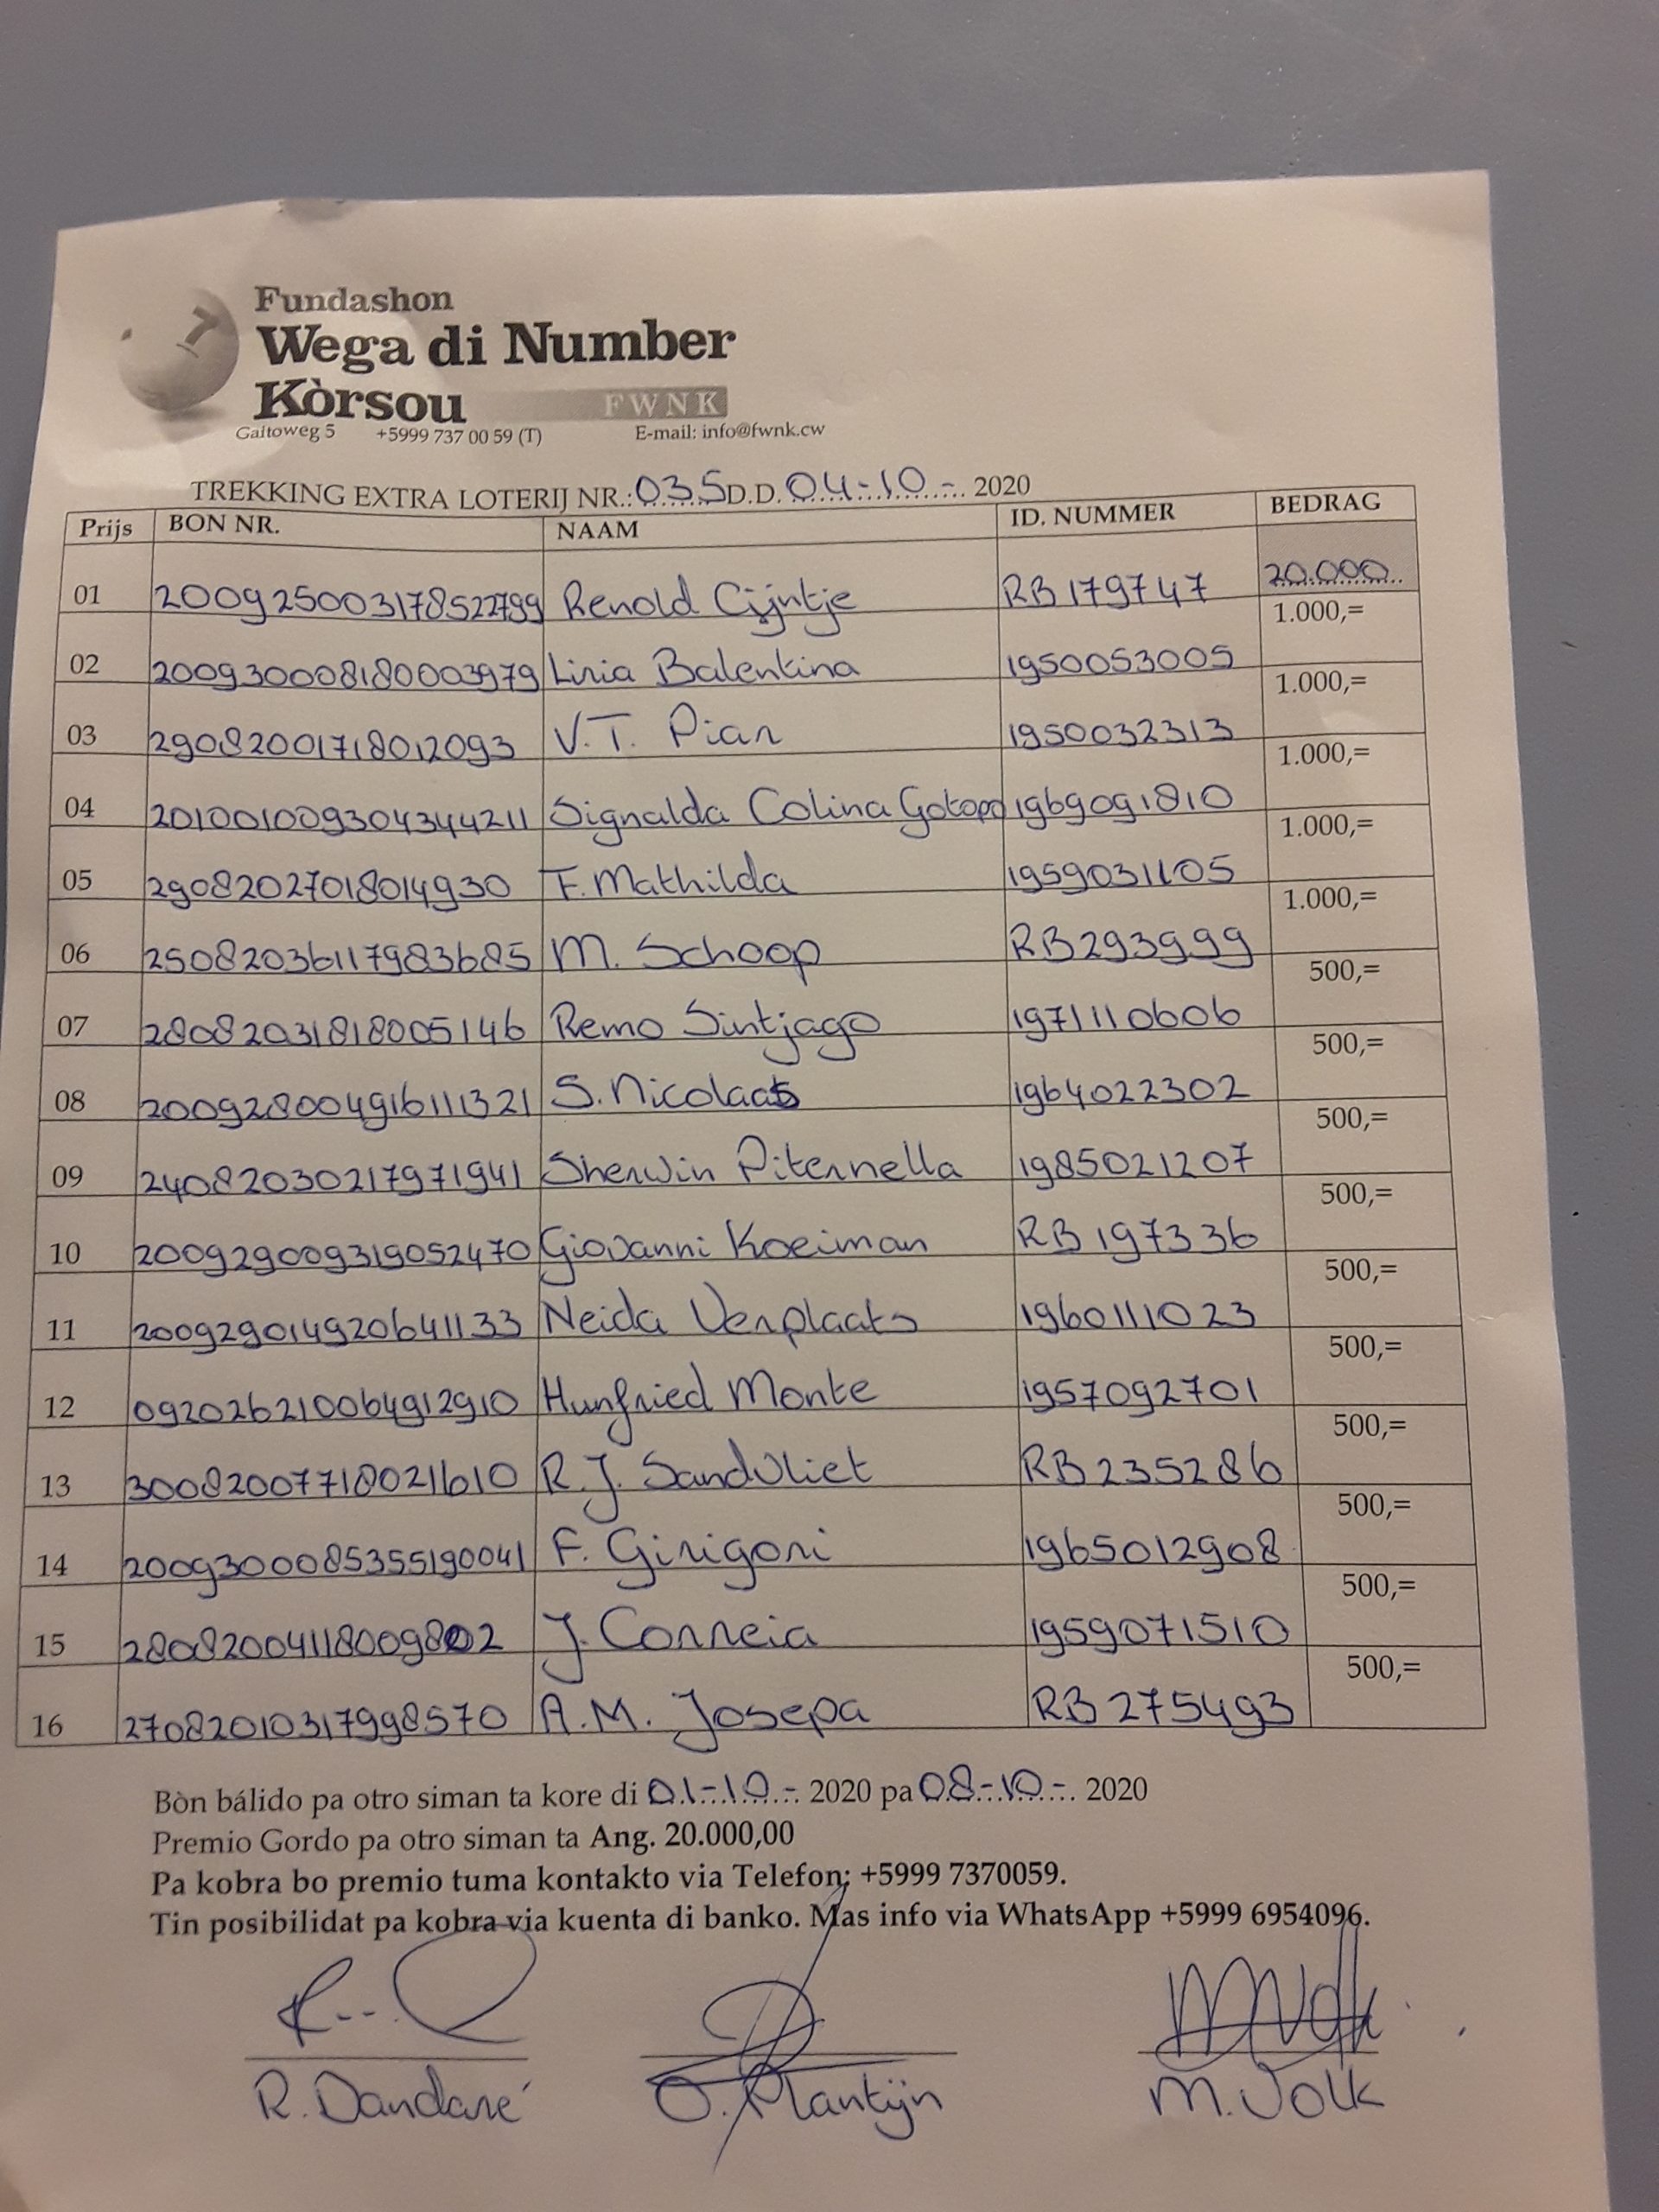 Fundashon
Wega di Number
Kòrsou FWNK
Gaitoweg 5 +5999 737 00 59 (T) E-mail: info@fwnk.cw
TREKKING EXTRA LOTERIJ NR.: 035 D.D. 04-10-. 2020
Prijs BON NR. NAAM ID. NUMMER BEDRAG
01 200925003178522799 Renold Cijntje RB179747 20.000
02 200930008180003979 Liria Balentina 1950053005 1.000,=
03 29082001718012093 V.T. Piar 1950032313 1.000,=
04 201001009304344211 Signalda Colina Gotopo 1969091810 1.000,=
05 29082027018014930 F. Mathilda 1959031105 1.000,=
06 25082036117983685 M. Schoop RB293999 1.000,=
07 28082031818005146 Remo Sintjago 1971110606 500,=
08 200928004916111321 S. Nicolaas 1964022302 500,=
09 24082030217971941 Sherwin Piternella 1985021207 500,=
10 200929009319052470 Giovanni Koeiman RB197336 500,=
11 200929014920641133 Neida Verplaats 1960111023 500,=
12 092026210064912910 Hunfried Monte 1957092701 500,=
13 30082007718021610 R.J. Sandvliet RB235286 500,=
14 2009300085355190041 F. Girigori 1965012908 500,=
15 28082004118009802 J. Correia 1959071510 500,=
16 27082010317998570 A.M. Josepa RB275493 500,=
Bòn bálido pa otro siman ta kore di 01-10-. 2020 pa 08-10-. 2020
Premio Gordo pa otro siman ta Ang. 20.000,00
Pa kobra bo premio tuma kontakto via Telefon: +5999 7370059.
Tin posibilidat pa kobra via kuenta di banko. Mas info via WhatsApp +5999 6954096.
R. Dandaré O. Plantijn M. Volk